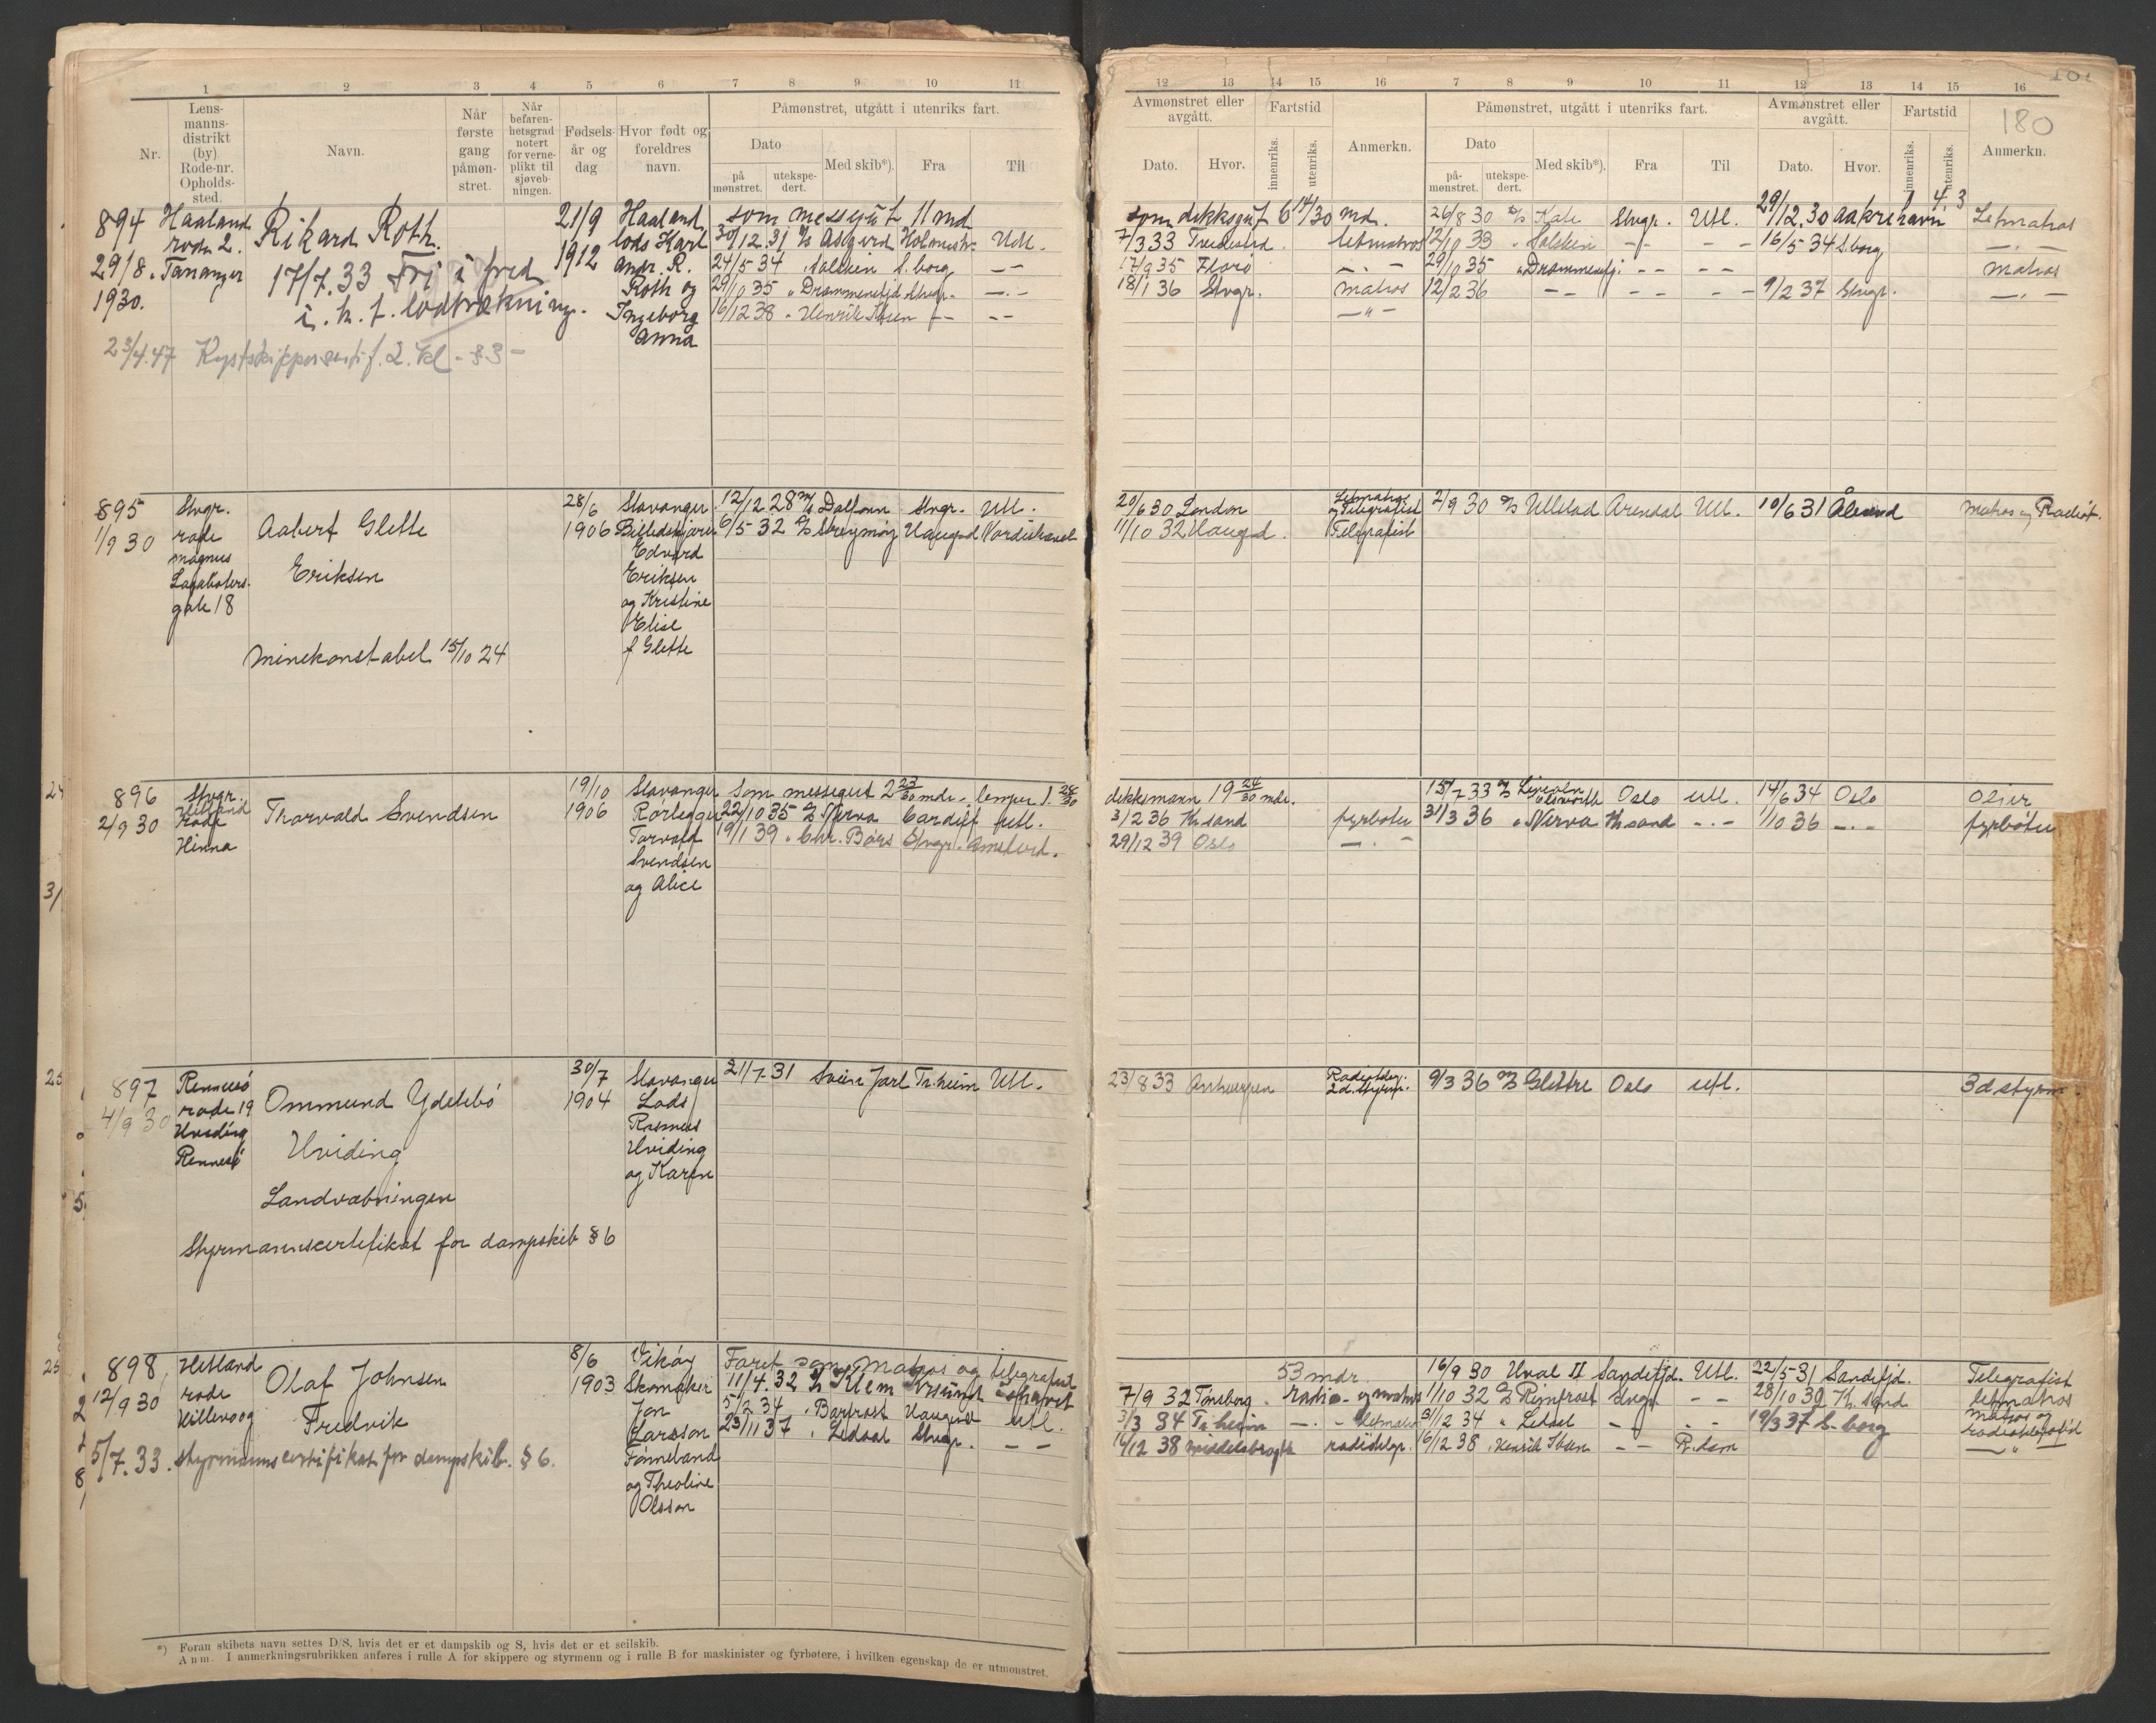 1 2 3 4 5 6 7 8 9 10 11
Nr.
Lens-
manns-
distrikt
(by)
Rode-nr.
Opholds-
sted.
Navn.
Når
første
gang
påmøn-
stret.
Når
befaren-
hetsgrad
notert
for verne-
plikt til
sjøveb-
ningen.
Fødsels-
år og
dag
Hvor født og
foreldres
navn.
Påmønstret, utgått i utenriks fart.
Dato
på
mønstret.
utekspe-
dert.
Med skib*).
Fra
Til
894 Haaland Rikard Roth. 21/9 Haaland som messegut 11 md
rode 2. lods Karl 30/12.31 Asgerd Holmestr. Utl.
29/8. Tananger 17/7.33 Fri i fred 1912 Andr. R. 24/5 34 Solskin S.borg — —
1930. i. h. t. lodtrekning. Roth og 29/10 35 " Drammensfjd Stvgr. —.—
Ingeborg 16/12 38 " Henrik Ibsen — — — —
Anna
23/4.47 Kystskippersertif. 2. kl - §3 -
895 Stvgr. 28/6 Stavanger 12/12 28 Dalfonn Stvgr. Utl.
1/9 30 rode Aabert Glette 1906 6/5 32 Haugsd Nordishavet
Magnus Edvard
Eriksen Eriksen
gate 18 og Kristine
Elise
Minekonstabel 15/10 24 f Glette
896 Stvgr. 19/10 Stavanger Som messegut 2 23/30 mdr. lemper 1. 28/30
2/9 30 rode Thorvald Svendsen 1906 Rørlegger 22/10 35 Nerva Cardiff Utl.
Hinna Torvald 19/1 39 " Chr. Børs Stvgr. Amsterd.
Svendsen
og Alice
897 Rennesö 30/7 Stavanger 21/7-31 Svein Jarl Tr.heim Utl.
4/9 30 rode 19 Ommund Ydstebö 1904 Lods
Hviding Rasmus
Rennesö Hviding Hviding
og Karen
Landvæbningen
Styrmannscertifikat for dampskib § 6
898 Hetland 8/6 Vikøy Faret som Matros og telegrafist
12/9 30 rode Olaf Johnsen 1903 Skomaker 11/4.32 Klem Krsund Ishavet
Hillevaag Fredvik Jon 5/2 34 " Barfrost Haugsd Utl.
Larsson 23/11 37 " Ledaal Stvgr. — —
5/7.33. Styrmannscertifikat for dampskib. § 6. Fønneland
og Theoline
Olsson
*) Foran skibets navn settes D/S, hvis det er et dampskib og S, hvis det er et seilskib.
Anm. I anmerkningsrubrikken anføres i rulle A for skippere og styrmenn og i rulle B for maskinister og fyrbøtere, i hvilken egenskap de er utmønstret.
12 13 14 15 16 7 8 9 10 11 12 13 14 15 16
180
Avmønstret eller
avgått.
Dato.
Hvor.
Fartstid
innenriks.
utenriks.
Anmerkn.
Påmønstret, utgått i utenriks fart.
Dato
på-
mønstret.
utekspe-
dert.
Med skib*).
Fra
Til
Avmønstret eller
avgått.
Dato.
Hvor.
Fartstid
innenriks.
utenriks.
Anmerkn.
som dekksgut 6 14/30 md. 26/8 30 Stvgr. Utl. 29/12.30 Aakrehavn 4. 3 Letmatros
7/3 33 letmatros 12/10 33 " Solskin — — — — 16/5 34 S.borg —.—
17/9 35 Florö —.— 29/10 35 " Drammensfj. — — — — Matros
18/1 36 Stvgr. Matros 12/2 36 — — — — — — 9/2 37 Stvgr. —.—
—"—
20/6 30 London Letmatros og Telegrafist 2/9 30 Ullstad Arendal Utl. 10/6 31 Ålesund Matros og Radiot.
11/10 32 Haugsd. Telegrafist
dekksmann 19 24/30 mdr. 15/7 33 Lincoln Ellsworth Oslo Utl. 14/6 34 Oslo Oliér
3/2 36 Kr.sand fyrböter 31/3 36 " Nerva Kr.sand —.— 1/10 36 —.— fyrböter
29/12 39 Oslo —.—
23/8 33 Antwerpen 2d.styrm. 9/3 36 Glittre Oslo Utl. 3d styrm.
53 mdr. 16/9 30 Hval II Sandefjd. Utl. 22/5-31 Sandefjd. Telegrafist
7/9 32 Tønsberg. Radio- og matros 1/10 32 Rimfrost Stvgr — — 28/10 32 Kr. sand letmatros
3/3 34 Tr.heim —.— letmatros 3/12 34 " Ledaal — — — 19/3 37 S.borg Matros og radiotelegrafist
16/12 38 Middelsbrogh radiotelegr. 16/12 38 " Henrik Ibsen — — R.dam —"—